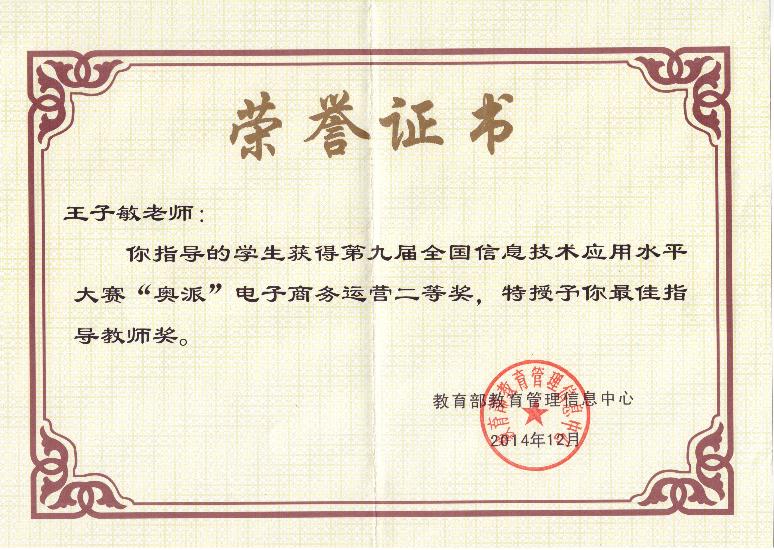 荣誉证书
王子敏老师：
你指导的学生获得第九届全国信息技术应用水平
大赛“奥派”电子商务运营二等奖，特授予你最佳指
导教师奖。
教育部教育管理信息中心
2014年12月
教育部教育管理信息中心